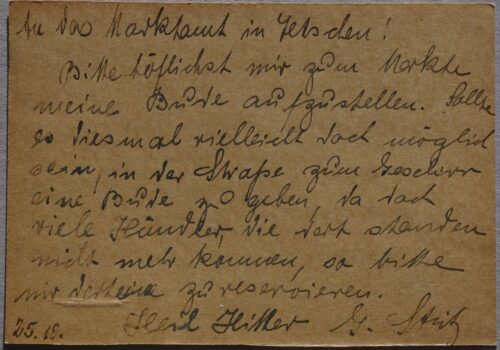 An das Marktamt in Tetschen!
Bitte höflichst mir zum Markte
meine Bude aufzustellen. Sollte
es diesmal vielleicht doch möglich
sein, in der Straße zum Geschirr
eine Bude zu geben, da doch
viele Händler, die dort standen
nicht mehr kommen, so bitte
mir dort eine zu reservieren.
25.10. Heil Hitler G.